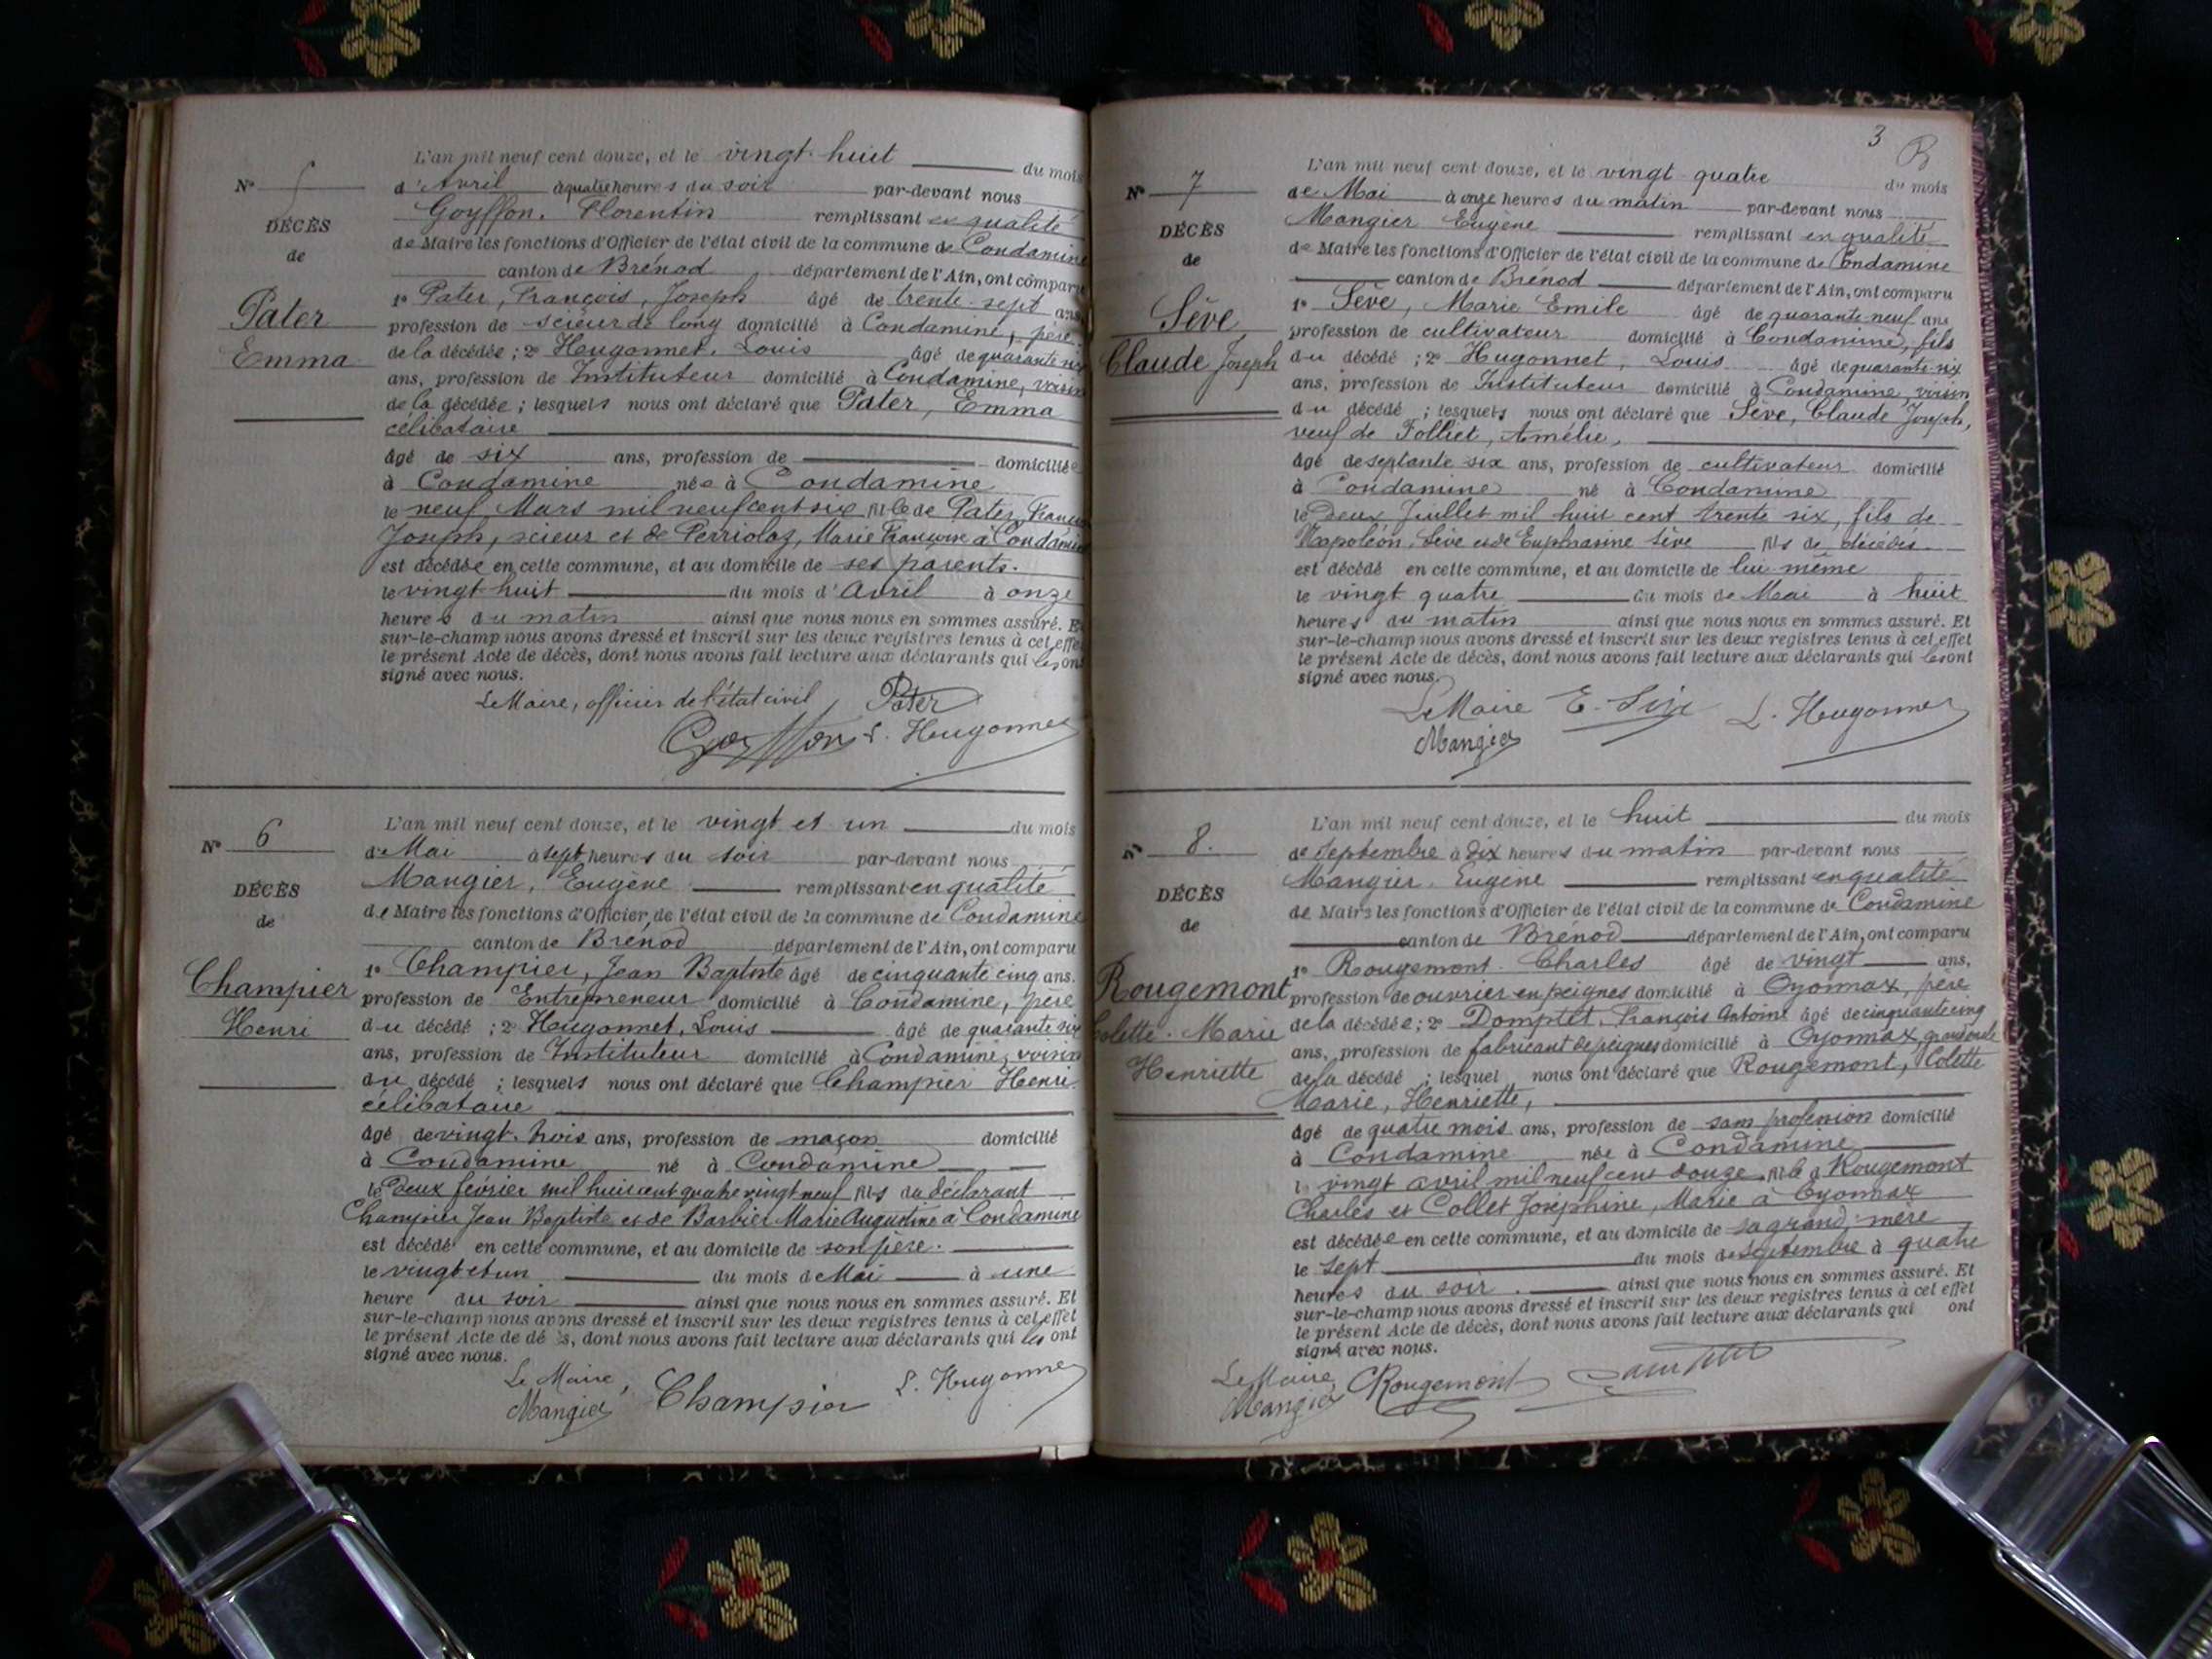 L'an mil neuf cent douze, et le vingt-huit du mois
N° 5
d'Avril à quatre heures du soir par-devant nous
Goyffon, Florentin remplissant en qualité
DÉCÈS
de Maire les fonctions d'Officier de l'état civil de la commune de Condamine
de
canton de Brénod département de l'Ain, ont comparu
1° Pater, François, Joseph âgé de trente-sept ans
Pater
profession de scieur de long domicilié à Condamine, père
Emma
de la décédée ; 2° Hugonnet, Louis âgé de quarante-six
ans, profession de Instituteur domicilié à Condamine, voisin
de la décédée ; lesquels nous ont déclaré que Pater, Emma
célibataire
âgé de six ans, profession de domiciliée
à Condamine née à Condamine
le neuf Mars mil neuf cent six fille de Pater, François
Joseph, scieur et de Perriolaz, Marie Françoise à Condamine
est décédée en cette commune, et au domicile de ses parents.
le vingt-huit du mois d'Avril à onze
heures du matin ainsi que nous nous en sommes assuré. Et
sur-le-champ nous avons dressé et inscrit sur les deux registres tenus à cet effet
le présent Acte de décès, dont nous avons fait lecture aux déclarants qui les ont
signé avec nous.
Le Maire, officier de l'état civil, Pater
Goyffon L. Hugonnet
L'an mil neuf cent douze, et le vingt et un du mois
N° 6
de Mai à sept heures du soir par-devant nous
Mangier, Eugène remplissant en qualité
DÉCÈS
de Maire les fonctions d'Officier de l'état civil de la commune de Condamine
de
canton de Brénod département de l'Ain, ont comparu
1° Champier, Jean Baptiste âgé de cinquante cinq ans.
Champier
profession de Entrepreneur domicilié à Condamine, père
Henri
du décédé ; 2° Hugonnet, Louis âgé de quarante six
ans, profession de Instituteur domicilié à Condamine, voisin
du décédé ; lesquels nous ont déclaré que Champier Henri
célibataire
âgé de vingt-trois ans, profession de maçon domicilié
à Condamine né à Condamine
le deux février mil huit cent quatre vingt neuf fils du déclarant
Champier Jean Baptiste et de Barbier Marie Augustine à Condamine
est décédé en cette commune, et au domicile de son père.
le vingt et un du mois de Mai à une
heure du soir ainsi que nous nous en sommes assuré. Et
sur-le-champ nous avons dressé et inscrit sur les deux registres tenus à cet effet
le présent Acte de dé s, dont nous avons fait lecture aux déclarants qui les ont
signé avec nous.
Le Maire, Champier L. Hugonnet
Mangier
3
L'an mil neuf cent douze, et le vingt-quatre du mois
N° 7
de Mai à onze heures du matin par-devant nous
Mangier Eugène remplissant en qualité
DÉCÈS
de Maire les fonctions d'Officier de l'état civil de la commune de Condamine
de
canton de Brénod département de l'Ain, ont comparu
1° Sève, Marie Emile âgé de quarante-neuf ans
Sève
profession de cultivateur domicilié à Condamine, fils
Claude Joseph
du décédé ; 2° Hugonnet, Louis âgé de quarante-six
ans, profession de Instituteur domicilié à Condamine, voisin
du décédé ; lesquels nous ont déclaré que Sève, Claude Joseph,
veuf de Folliet, Amélie,
âgé de septante six ans, profession de cultivateur domicilié
à Condamine né à Condamine
le Deux Juillet mil huit cent trente six, fils de
Napoléon Sève et de Euphrasine Sève fils de décédés
est décédé en cette commune, et au domicile de lui-même
le vingt quatre du mois de Mai à huit
heures du matin ainsi que nous nous en sommes assuré. Et
sur-le-champ nous avons dressé et inscrit sur les deux registres tenus à cet effet
le présent Acte de décès, dont nous avons fait lecture aux déclarants qui les ont
signé avec nous.
Le Maire E. Sève L. Hugonnet
Mangier
L'an mil neuf cent douze, et le huit du mois
N° 8.
de Septembre à dix heures du matin par-devant nous
Mangier, Eugène remplissant en qualité
DÉCÈS
de Maire les fonctions d'Officier de l'état civil de la commune de Condamine
de
canton de Brénod département de l'Ain, ont comparu
1° Rougemont Charles âgé de vingt ans,
Rougemont
profession de ouvrier en peignes domicilié à Oyonnax, père
Colette Marie
de la décédée ; 2° Domptet, François Antoine âgé de cinquante cinq
ans, profession de fabricant de peignes domicilié à Oyonnax grand oncle
Henriette
de la décédé ; lesquel nous ont déclaré que Rougemont, Colette
Marie, Henriette,
âgé de quatre mois ans, profession de sans profession domicilié
à Condamine née à Condamine
l vingt avril mil neuf cent douze fille d Rougemont
Charles et Collet Joséphine, Marie à Oyonnax
est décédée en cette commune, et au domicile de sa grand-mère
le sept du mois de Septembre à quatre
heures du soir. ainsi que nous nous en sommes assuré. Et
sur-le-champ nous avons dressé et inscrit sur les deux registres tenus à cet effet
le présent Acte de décès, dont nous avons fait lecture aux déclarants qui ont
signé avec nous.
Le Maire, CRougemont
Mangier